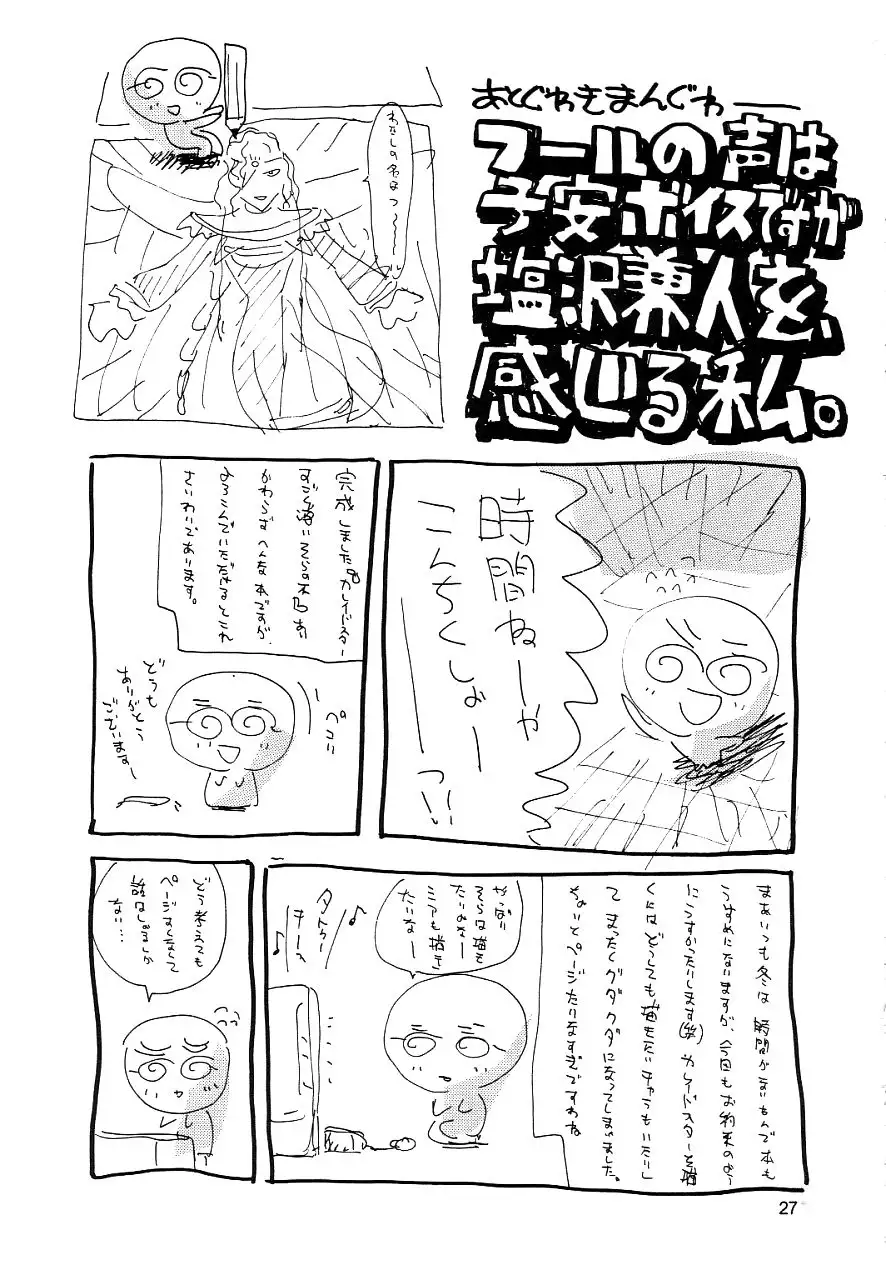 あとぐわきまんぐわ——
フールの声は
子安ボイスですが
塩沢兼人を、
感じる私。
わたしの名はっ〜〜〜
時間ねーや
こんちくしょー
ーっ!!
完成しましたカレイドスター
すごく薄いそらの本
かわらずへんな本ですが、
よろこんでいただけるとこれ
さいわいであります。
ペコリ
どうも
ありがとう
ございますー
まあいつも冬は時間がないもんで本も
うすめになりますが、今回もお約束のよー
にうすかったりします(笑)カレイドスターを描
くにはどうしても描きたいキャラもいたりし
てまったくグダグダになってしまいました。
ちょいとページたりなすぎですわね
やっぱり
そらは描き
たいなー
ミアも描き
たいなー
タトゥー
キーン
♪
♪
どう考えても
ページ少なくして
話なし
ない…
27